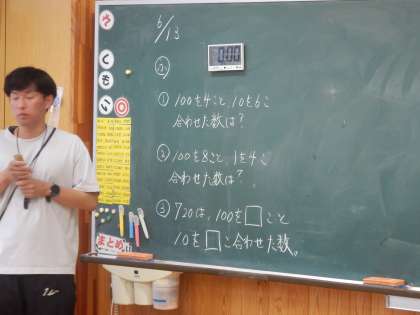 6/13
0:00
①100を4こと、10を6こ
合わせた数は?
②100を8こと、1を4こ
合わせた数は?
③720は、100を□こと
10を□こ合わせた数。
まとめ